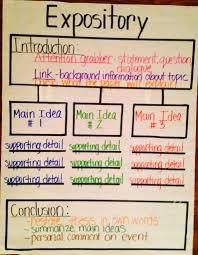 Expository
Introduction:
Attention grabber - statement, question
dialogue
Link - background information about topic
what the paper will explain
Main Idea Main Idea Main Idea
# 1 # 2 # 3
supporting detail supporting detail supporting detail
supporting detail supporting detail supporting detail
supporting detail supporting detail supporting detail
Conclusion:
- restate thesis in own words
- summarize main ideas
- personal comment on event